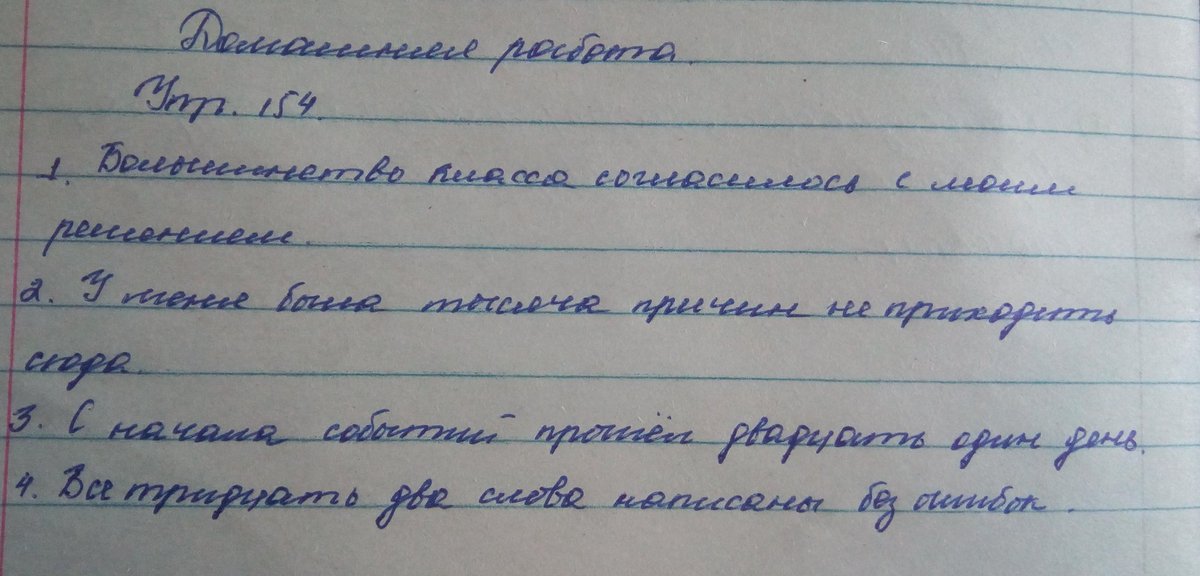 Домашняя работа.
Упр. 154.
1. Большинство класса согласилось с моим
решением.
2. У меня была тысяча причин не приходить
сюда.
3. С начала событий прошёл двадцать один день.
4. Все тридцать два слова написаны без ошибок.